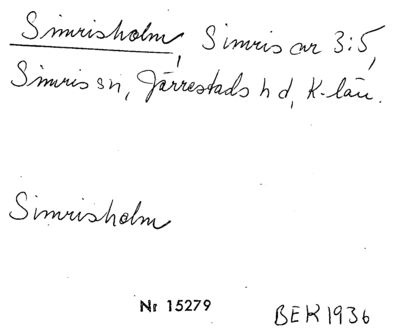 Simrisholm, Simris ar 3:5,
Simris sn, Järrestads hd, K-län.
Simrisholm
Nr 15279
BEK 1936